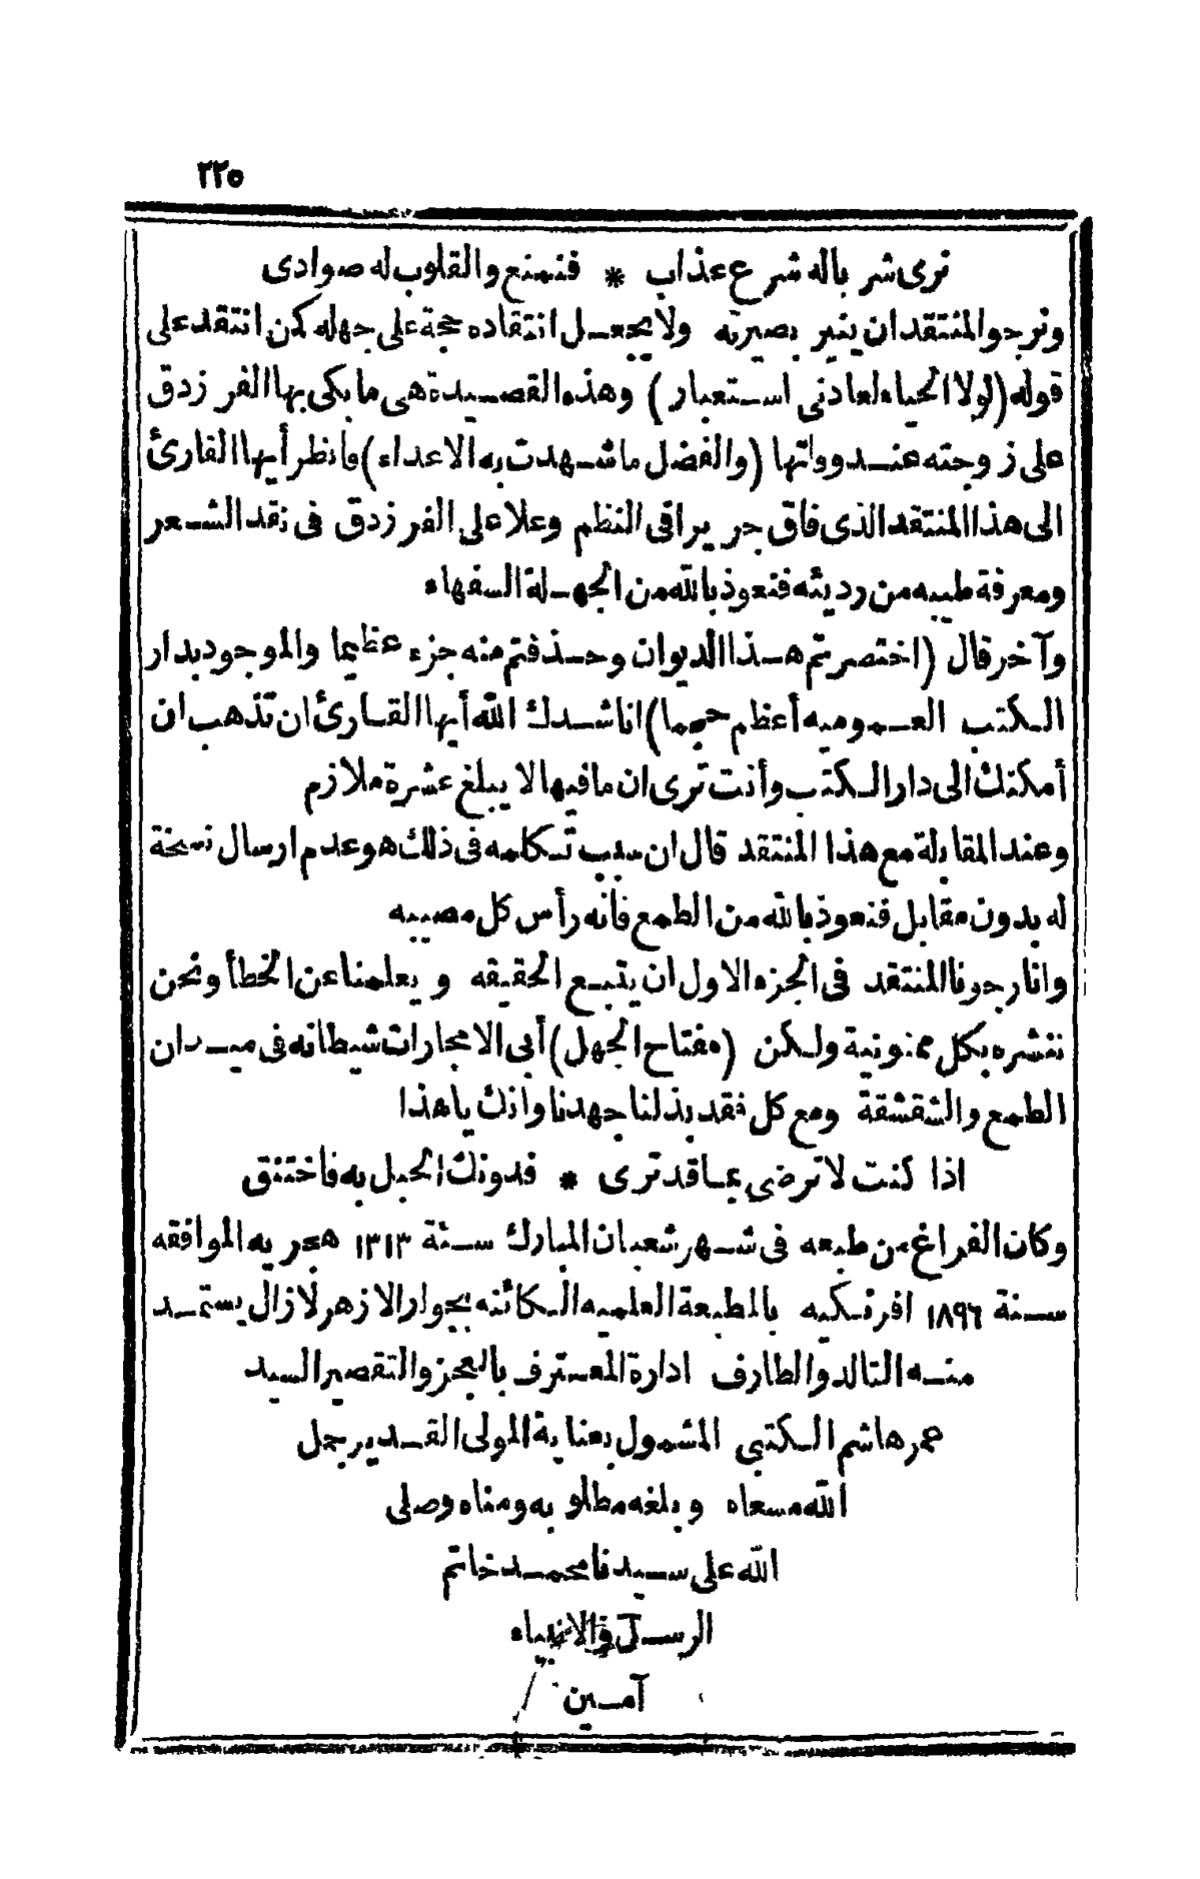 ٢٢٥
نرى شر باله شرع عذاب * فنمنع والقلوب له صوادى
ونرجو المنتقد ان ينير بصيرته ولا يجعل انتقاده حجة على جهله كمن انتقد على
قوله (لولا الحياء لعادنى استعبار) وهذه القصيدة هى ما بكى بها الفرزدق
على زوجته عند وفاتها (والفضل ما شهدت به الاعداء) فانظر أيها القارئ
الى هذا المنتقد الذى فاق جريرا فى النظم وعلا على الفرزدق فى نقد الشعر
ومعرفة طيبه من رديئه فنعوذ بالله من الجهلة السفهاء
وآخر قال (اختصرتم هذا الديوان وحذفتم منه جزء عظيما والموجود بدار
الكتب العموميه أعظم حجما) اناشدك الله أيها القارئ ان تذهب ان
أمكنك الى دار الكتب وأنت ترى ان ما فيها لا يبلغ عشرة ملازم
وعند المقابلة مع هذا المنتقد قال ان سبب تكلمه فى ذلك هو عدم ارسال نسخة
له بدون مقابل فنعوذ بالله من الطمع فانه رأس كل مصيبه
وانا رجونا المنتقد فى الجزء الاول ان يتبع الحقيقه ويعلمنا عن الخطأ ونحن
ننشره بكل ممنونية ولكن (مفتاح الجهل) أبى الا مجارات شيطانه فى ميدان
الطمع والشقشقة ومع كل فقد بذلنا جهدنا وانك يا هذا
اذا كنت لا ترضى بما قد ترى * فدونك الحبل به فاختنق
وكان الفراغ من طبعه فى شهر شعبان المبارك سنة ١٣١٣ هجريه الموافقه
سنة ١٨٩٦ افرنكيه بالمطبعة العلميه الكائنه بجوار الازهر لا زال يستمد
منه التالد والطارف ادارة المعترف بالعجز والتقصير السيد
عمر هاشم الكتبى المشمول بعناية المولى القدير جمل
الله مسعاه وبلغه مطلوبه ومناه وصلى
الله على سيدنا محمد خاتم
الرسل والانبياء
آمين